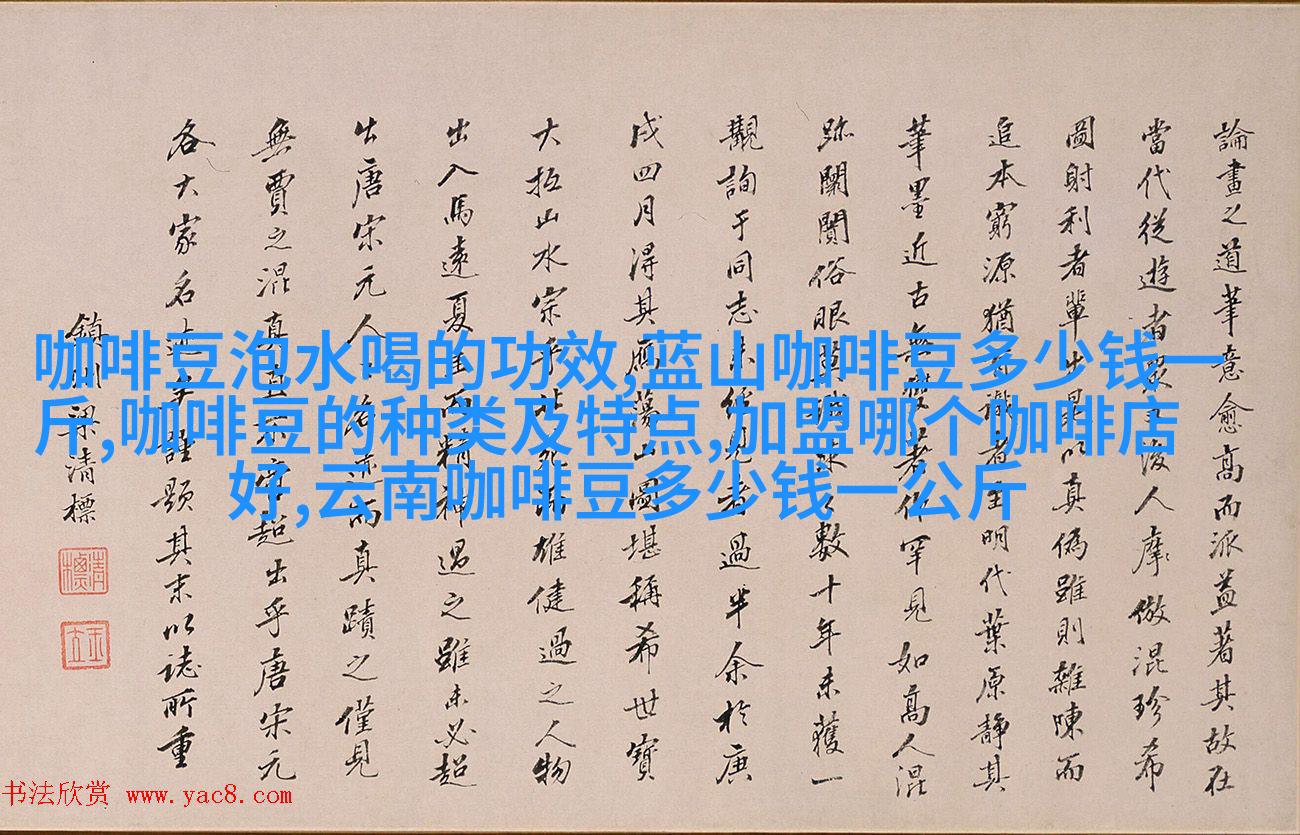 論畫之道筆意愈高而派益著其故在
當代從遊者眾生後人摩倣混珍希
圖射利者輩出是以真僞雖則雜陳而
追本窮源猶者主明代葉原靜其
筆墨近古無雙著作罕見如高人混
跡闤闠俗眼數十年未獲一
觀詢于同志未經見者過半余於庚
戌四月得其雁蕩山圖堪稱希世寶
大抵山水宗乎雄健過之人物
出入馬遠夏圭而精神過之雖未必超
出唐宋元人而真蹟之僅見
無賈之混真直可超出乎唐宋元
各大家名迹題其末以誌所重
梁清標
清標
咖啡豆泡水喝的功效,蓝山咖啡豆多少钱一
斤,咖啡豆的种类及特点,加盟哪个咖啡店
好,云南咖啡豆多少钱一公斤
书法欣赏 www.yac8.com